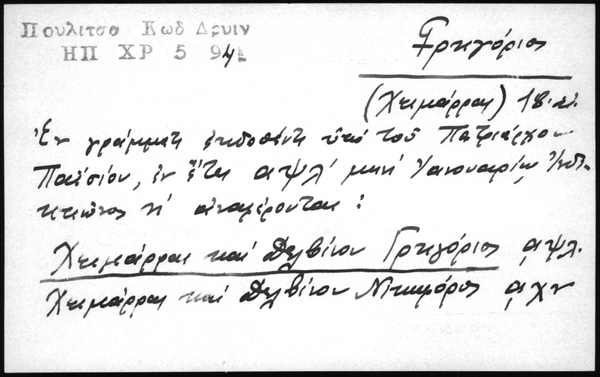 Πουλιτσα Κωδ Δρυιν
ΗΠ ΧΡ 5 94
Γρηγόριος
(Χειμάρρας) 18. αι.
Ἐν γράμματι ἐκδοθέντι ὑπὸ τοῦ Πατριάρχου
Παϊσίου, ἐν ἔτει αψλ' μηνὶ Ἰανουαρίῳ Ἰνδι-
κτιῶνος η' ἀναφέρονται:
Χειμάρρας καὶ Δελβίνου Γρηγόριος αψλ.
Χειμάρρας καὶ Δελβίνου Νικηφόρος αχν